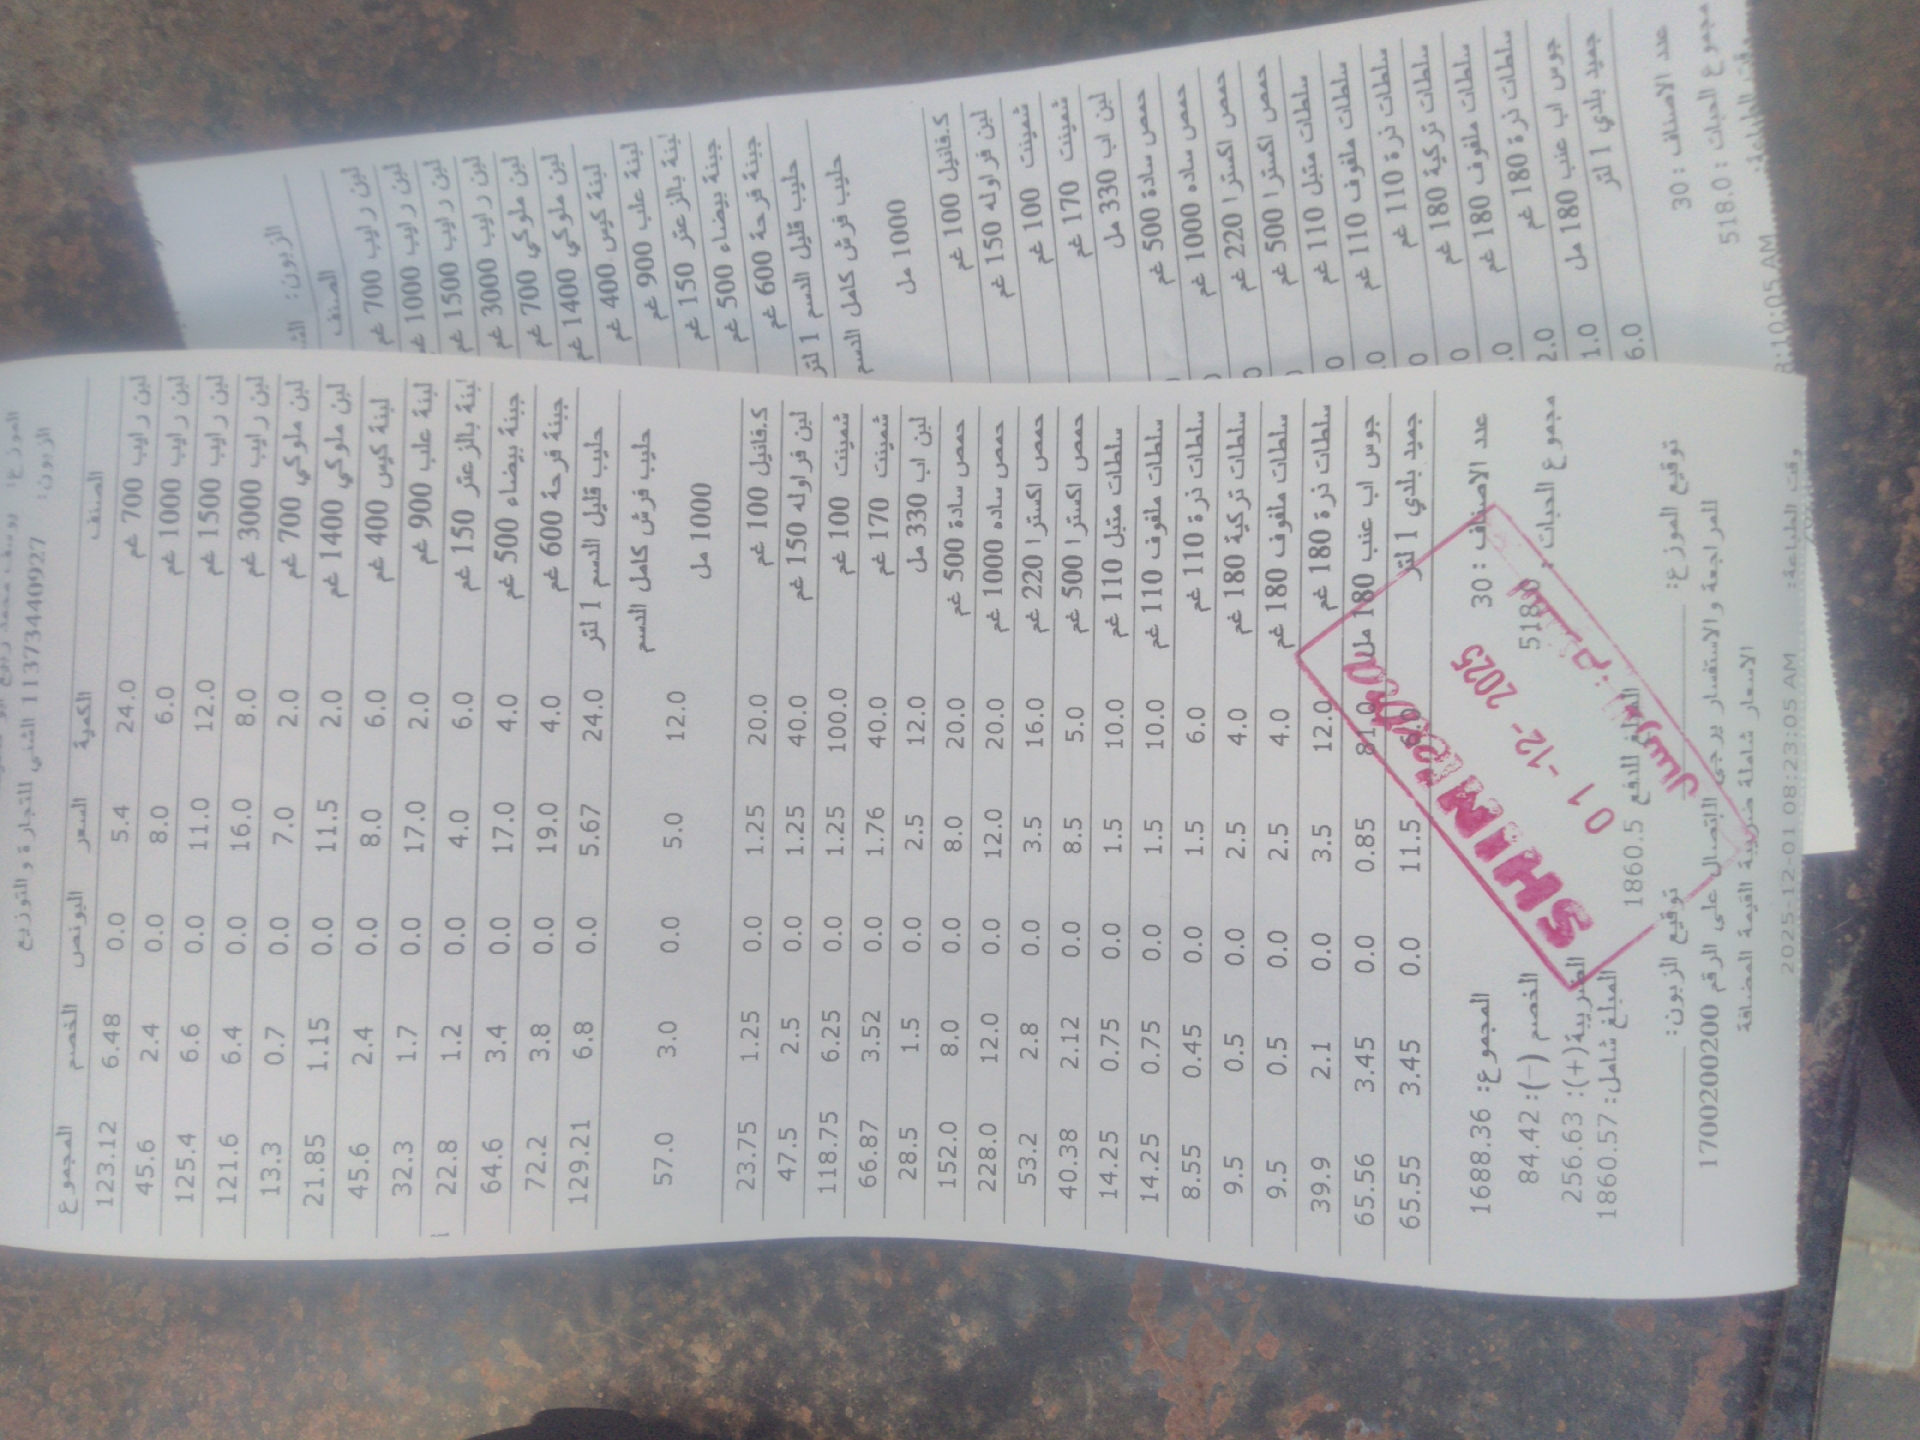 الزبون: 11373440927 الشني للتجارة و التوزيع
الصنف الكمية السعر البونص الخصم المجموع
لبن رايب 700 غم 24.0 5.4 0.0 6.48 123.12
لبن رايب 1000 غم 6.0 8.0 0.0 2.4 45.6
لبن رايب 1500 غم 12.0 11.0 0.0 6.6 125.4
لبن رايب 3000 غم 8.0 16.0 0.0 6.4 121.6
لبن ملوكي 700 غم 2.0 7.0 0.0 0.7 13.3
لبن ملوكي 1400 غم 2.0 11.5 0.0 1.15 21.85
لبنة كيس 400 غم 6.0 8.0 0.0 2.4 45.6
لبنة علب 900 غم 2.0 17.0 0.0 1.7 32.3
لبنة بالزعتر 150 غم 6.0 4.0 0.0 1.2 22.8
جبنة بيضاء 500 غم 4.0 17.0 0.0 3.4 64.6
جبنة فرحة 600 غم 4.0 19.0 0.0 3.8 72.2
حليب قليل الدسم 1 لتر 24.0 5.67 0.0 6.8 129.21
حليب فرش كامل الدسم 12.0 5.0 0.0 3.0 57.0
1000 مل
ك.فانيل 100 غم 20.0 1.25 0.0 1.25 23.75
لبن فراوله 150 غم 40.0 1.25 0.0 2.5 47.5
شمينت 100 غم 100.0 1.25 0.0 6.25 118.75
شمينت 170 غم 40.0 1.76 0.0 3.52 66.87
لبن اب 330 مل 12.0 2.5 0.0 1.5 28.5
حمص سادة 500 غم 20.0 8.0 0.0 8.0 152.0
حمص ساده 1000 غم 20.0 12.0 0.0 12.0 228.0
حمص اكسترا 220 غم 16.0 3.5 0.0 2.8 53.2
حمص اكسترا 500 غم 5.0 8.5 0.0 2.12 40.38
سلطات متبل 110 غم 10.0 1.5 0.0 0.75 14.25
سلطات ملفوف 110 غم 10.0 1.5 0.0 0.75 14.25
سلطات ذرة 110 غم 6.0 1.5 0.0 0.45 8.55
سلطات تركية 180 غم 4.0 2.5 0.0 0.5 9.5
سلطات ملفوف 180 غم 4.0 2.5 0.0 0.5 9.5
سلطات ذرة 180 غم 12.0 3.5 0.0 2.1 39.9
جوس اب عنب 180 مل 81.0 0.85 0.0 3.45 65.56
جميد بلدي 1 لتر 6.0 11.5 0.0 3.45 65.55
عدد الاصناف : 30 المجموع: 1688.36
مجموع الحبات : 518.0 الخصم (-): 84.42
الضريبة(+): 256.63
المبلغ للدفع 1860.5 المبلغ شامل: 1860.57
توقيع الموزع: توقيع الزبون:
للمراجعة والاستفسار يرجى الاتصال على الرقم 1700200200
الاسعار شاملة ضريبة القيمة المضافة
وقت الطباعة: 2025-12-01 08:23:05 AM
01 -12- 2025
الزبون:
الصنف
لبن رايب 700 غم
لبن رايب 1000 غم
لبن رايب 1500 غم
لبن رايب 3000 غم
لبن ملوكي 700 غم
لبن ملوكي 1400 غم
لبنة كيس 400 غم
لبنة علب 900 غم
لبنة بالزعتر 150 غم
جبنة بيضاء 500 غم
جبنة فرحة 600 غم
حليب قليل الدسم 1 لتر
حليب فرش كامل الدسم
1000 مل
ك.فانيل 100 غم
لبن فراوله 150 غم
شمينت 100 غم
شمينت 170 غم
لبن اب 330 مل
حمص سادة 500 غم
حمص ساده 1000 غم
حمص اكسترا 220 غم
حمص اكسترا 500 غم
سلطات متبل 110 غم
سلطات ملفوف 110 غم
سلطات ذرة 110 غم
سلطات تركية 180 غم
سلطات ملفوف 180 غم
سلطات ذرة 180 غم
جوس اب عنب 180 مل
جميد بلدي 1 لتر 6.0
عدد الاصناف : 30
مجموع الحبات : 518.0
وقت الطباعة: 8:10:05 AM